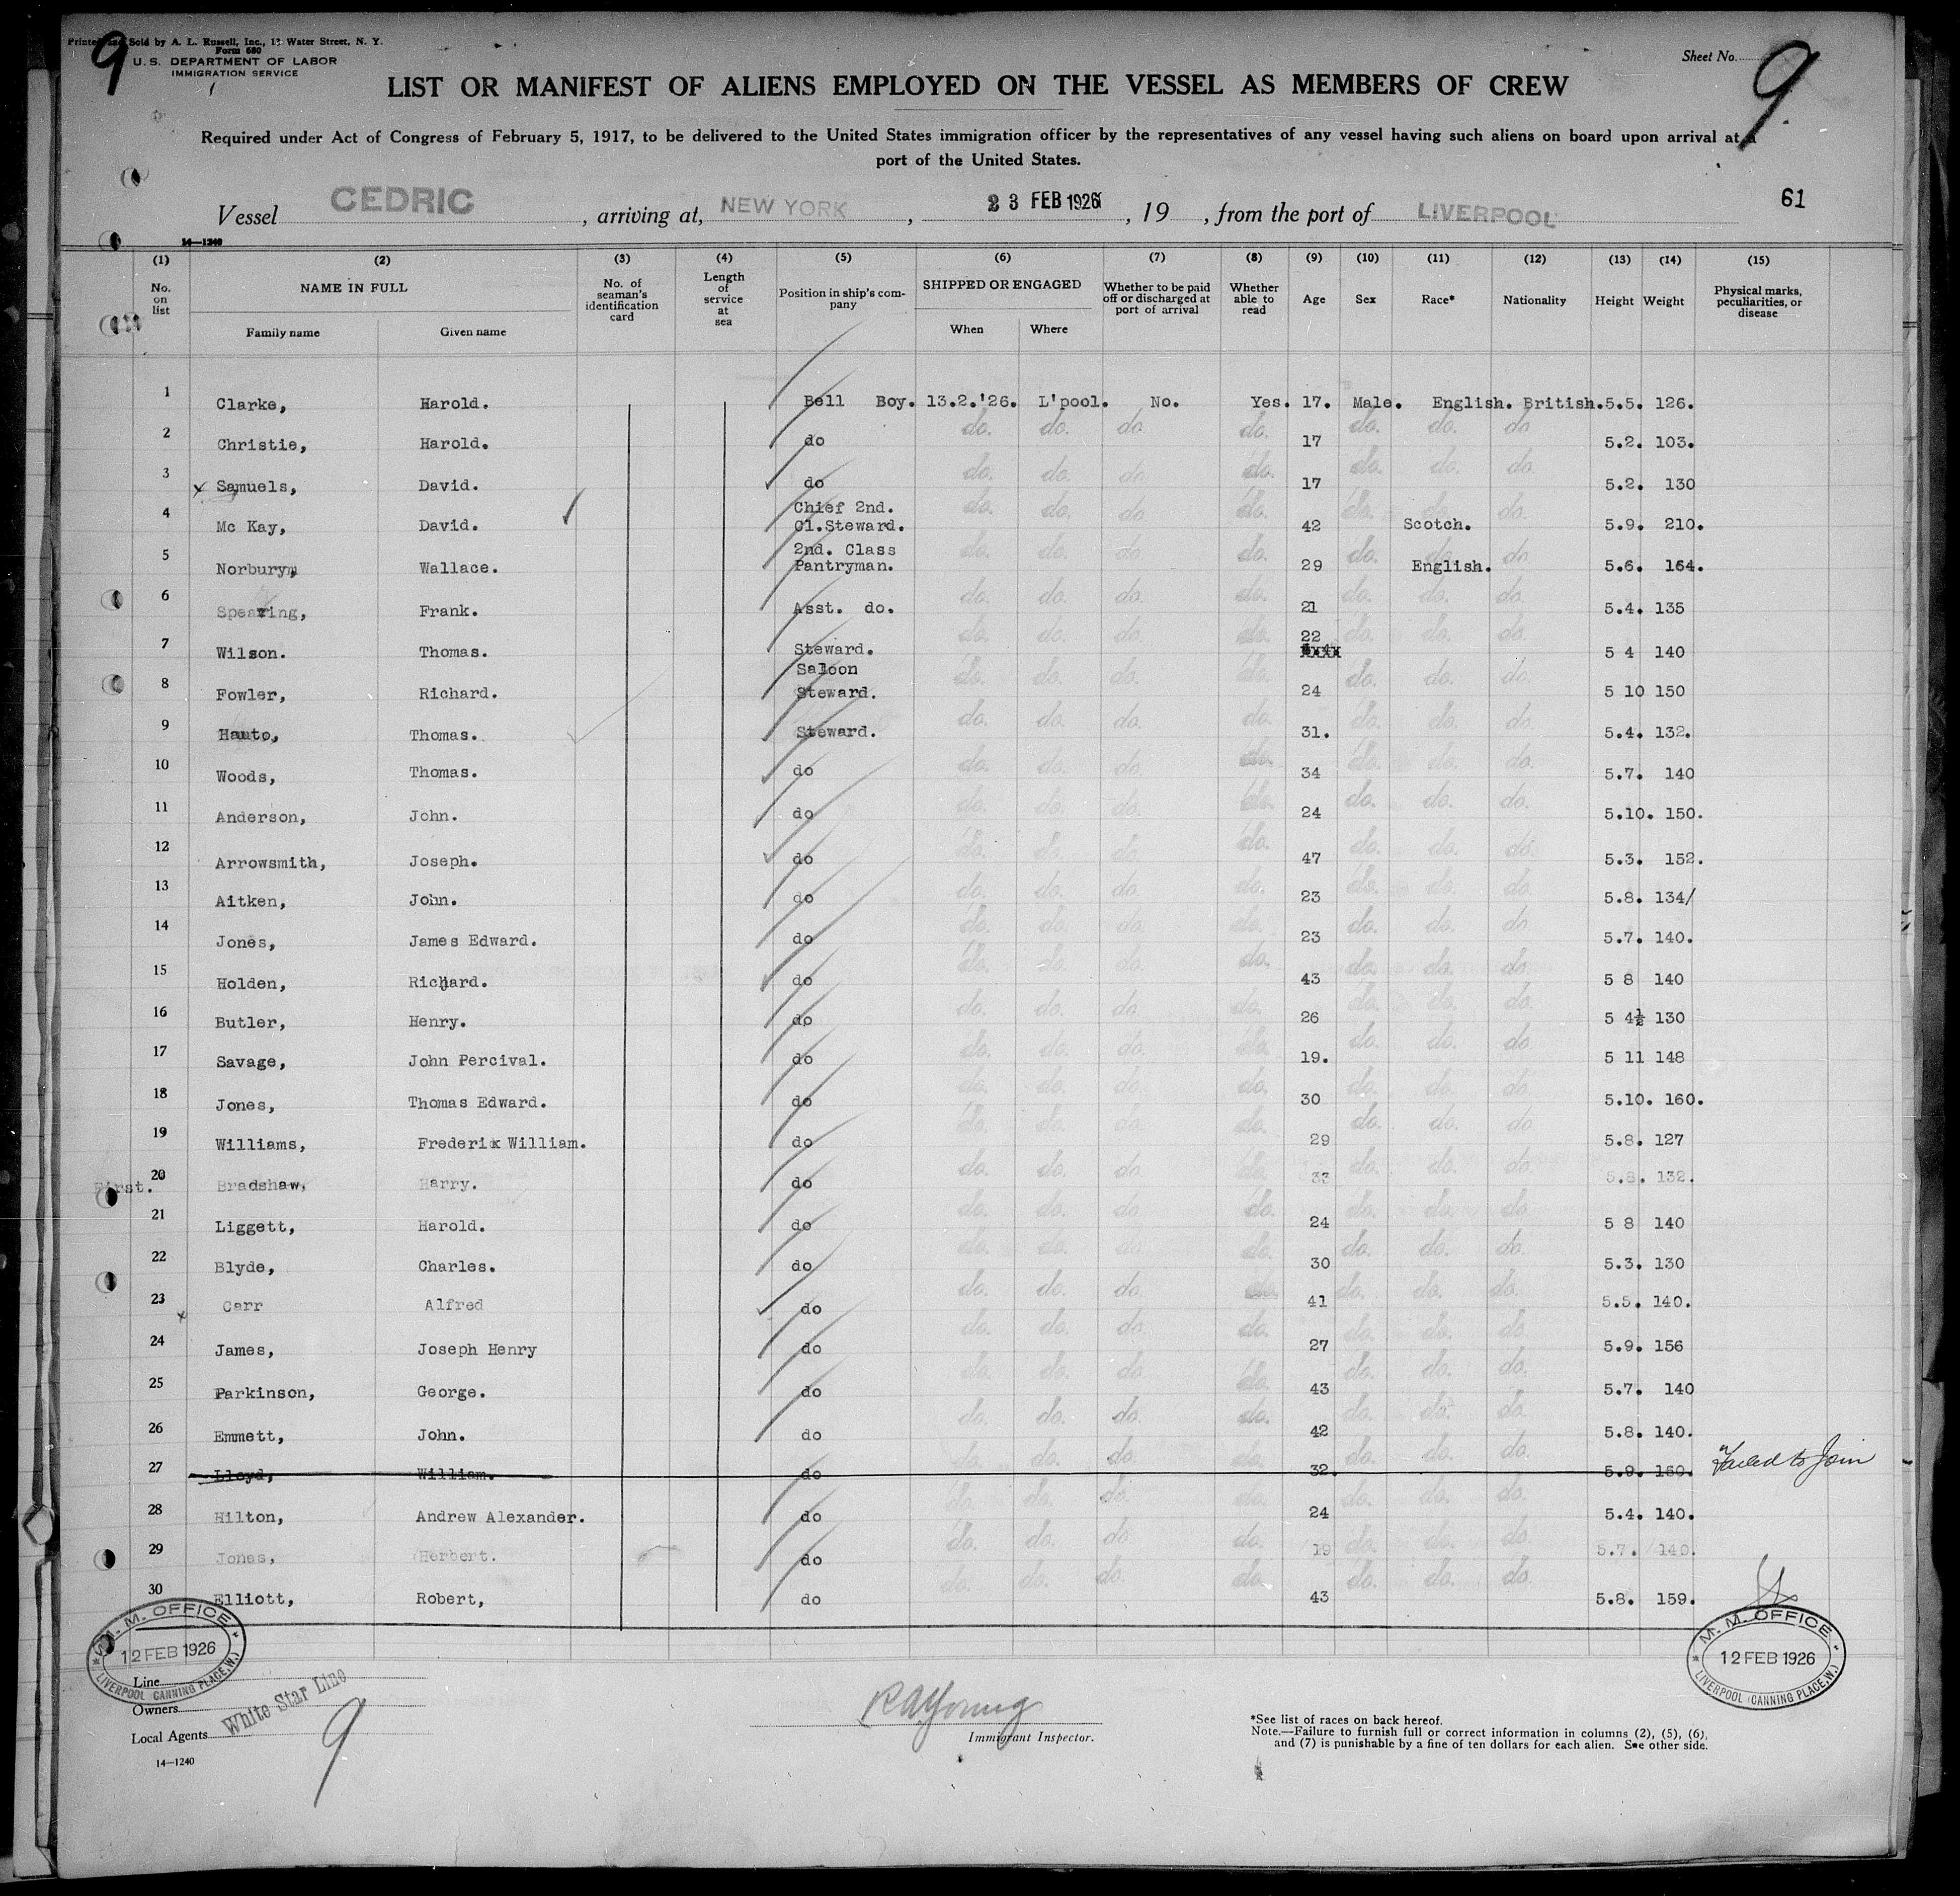 Printed and Sold by A. L. Russell, Inc., 13 Water Street, N. Y.
Form 680
U. S. DEPARTMENT OF LABOR
IMMIGRATION SERVICE
9
Sheet No. 9
LIST OR MANIFEST OF ALIENS EMPLOYED ON THE VESSEL AS MEMBERS OF CREW
Required under Act of Congress of February 5, 1917, to be delivered to the United States immigration officer by the representatives of any vessel having such aliens on board upon arrival at a
port of the United States.
Vessel CEDRIC, arriving at, NEW YORK, 23 FEB 1926, 19 , from the port of LIVERPOOL
61
14—1240
(1) (2) (3) (4) (5) (6) (7) (8) (9) (10) (11) (12) (13) (14) (15)
No. on list NAME IN FULL Family name Given name No. of seaman's identification card Length of service at sea Position in ship's company SHIPPED OR ENGAGED When Where Whether to be paid off or discharged at port of arrival Whether able to read Age Sex Race* Nationality Height Weight Physical marks, peculiarities, or disease
1 Clarke, Harold. Bell Boy. 13.2.'26. L'pool. No. Yes. 17. Male. English. British. 5.5. 126.
2 Christie, Harold. do do. do. do do. 17 do. do. do 5.2. 103.
3 Samuels, David. do do. do. do do. 17 do. do. do. 5.2. 130
4 Mc Kay, David. Chief 2nd. Cl.Steward. do. do. do do. 42 do. Scotch. do. 5.9. 210.
5 Norbury, Wallace. 2nd. Class Pantryman. do. do. do do. 29 do. English. do 5.6. 164.
6 Spearing, Frank. Asst. do. do. do. do. do. 21 do. do. do. 5.4. 135
7 Wilson. Thomas. Steward. do. do. do. do. 22 do. do. do. 5 4 140
8 Fowler, Richard. Saloon Steward. do. do. do. do. 24 do. do. do. 5 10 150
9 Hauto, Thomas. Steward. do. do. do. do. 31. do. do. do 5.4. 132.
10 Woods, Thomas. do do. do. do. do. 34 do. do. do. 5.7. 140
11 Anderson, John. do do. do. do. do. 24 do. do. do. 5.10. 150.
12 Arrowsmith, Joseph. do do. do. do. do. 47 do. do. do. 5.3. 152.
13 Aitken, John. do do. do. do. do. 23 do. do. do. 5.8. 134/
14 Jones, James Edward. do do. do. do. do. 23 do. do. do 5.7. 140.
15 Holden, Richard. do do. do. do. do. 43 do. do. do. 5 8 140
16 Butler, Henry. do do. do. do. do. 26 do. do. do. 5 4½ 130
17 Savage, John Percival. do do. do. do. do. 19. do. do. do 5 11 148
18 Jones, Thomas Edward. do do. do. do. do. 30 do. do. do 5.10. 160.
19 Williams, Frederik William. do do. do. do. do. 29 do. do. do 5.8. 127
First. 20 Bradshaw, Harry. do do. do. do do. 33 do. do. do. 5.8. 132.
21 Liggett, Harold. do do. do. do do. 24 do. do. do. 5 8 140
22 Blyde, Charles. do do. do. do do. 30 do. do. do. 5.3. 130
23 Carr Alfred do do. do. do. do. 41 do. do. do. 5.5. 140.
24 James, Joseph Henry do do. do. do. do. 27 do. do. do. 5.9. 156
25 Parkinson, George. do do. do. do. do. 43 do. do. do. 5.7. 140
26 Emmett, John. do do. do. do. do. 42 do. do. do. 5.8. 140.
27 Lloyd, William. do do. do. do. do. 32. do. do. do. 5.9. 160. Failed to Join
28 Hilton, Andrew Alexander. do do. do. do. do. 24 do. do. do. 5.4. 140.
29 Jones, Herbert. do do. do. do. do. 19 do. do. do. 5.7. 140.
30 Elliott, Robert, do do. do. do. do. 43 do. do. do. 5.8. 159.
M. M. OFFICE
12 FEB 1926
LIVERPOOL (CANNING PLACE, W.)
M. M. OFFICE
12 FEB 1926
LIVERPOOL (CANNING PLACE, W.)
Line
Owners White Star Line
Local Agents
14—1240
9
R A Young
Immigrant Inspector.
*See list of races on back hereof.
Note.—Failure to furnish full or correct information in columns (2), (5), (6),
and (7) is punishable by a fine of ten dollars for each alien. See other side.